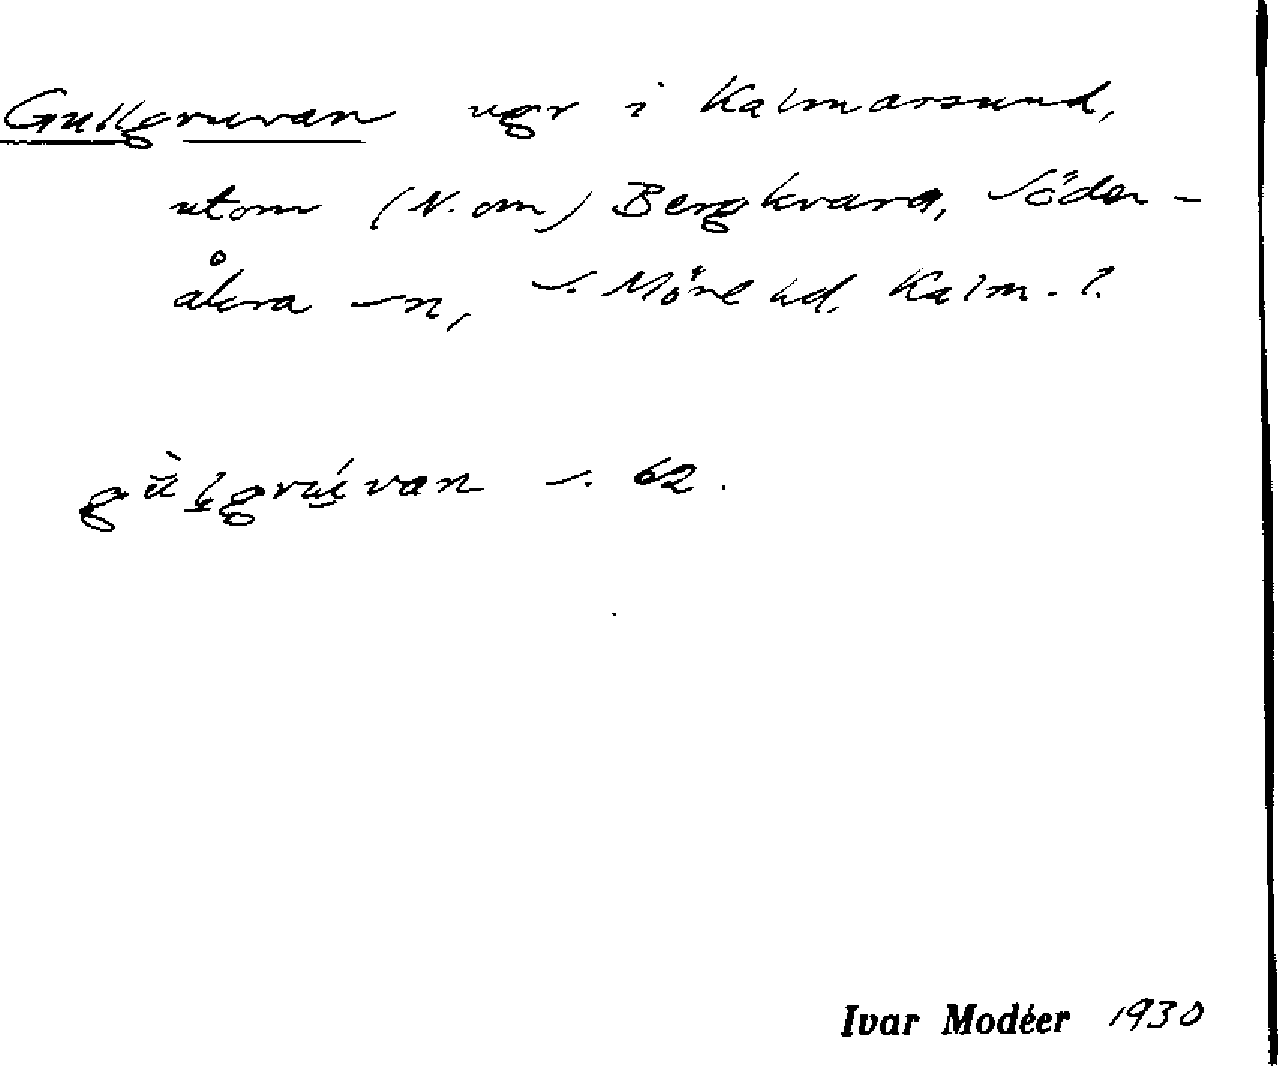 Gullgruvan ugr i Kalmarsund,
utom (N. om) Bergkvara, Söder-
åkra sn, S. Möre hd, Kalm. l.
s. 62.
Ivar Modéer 1930